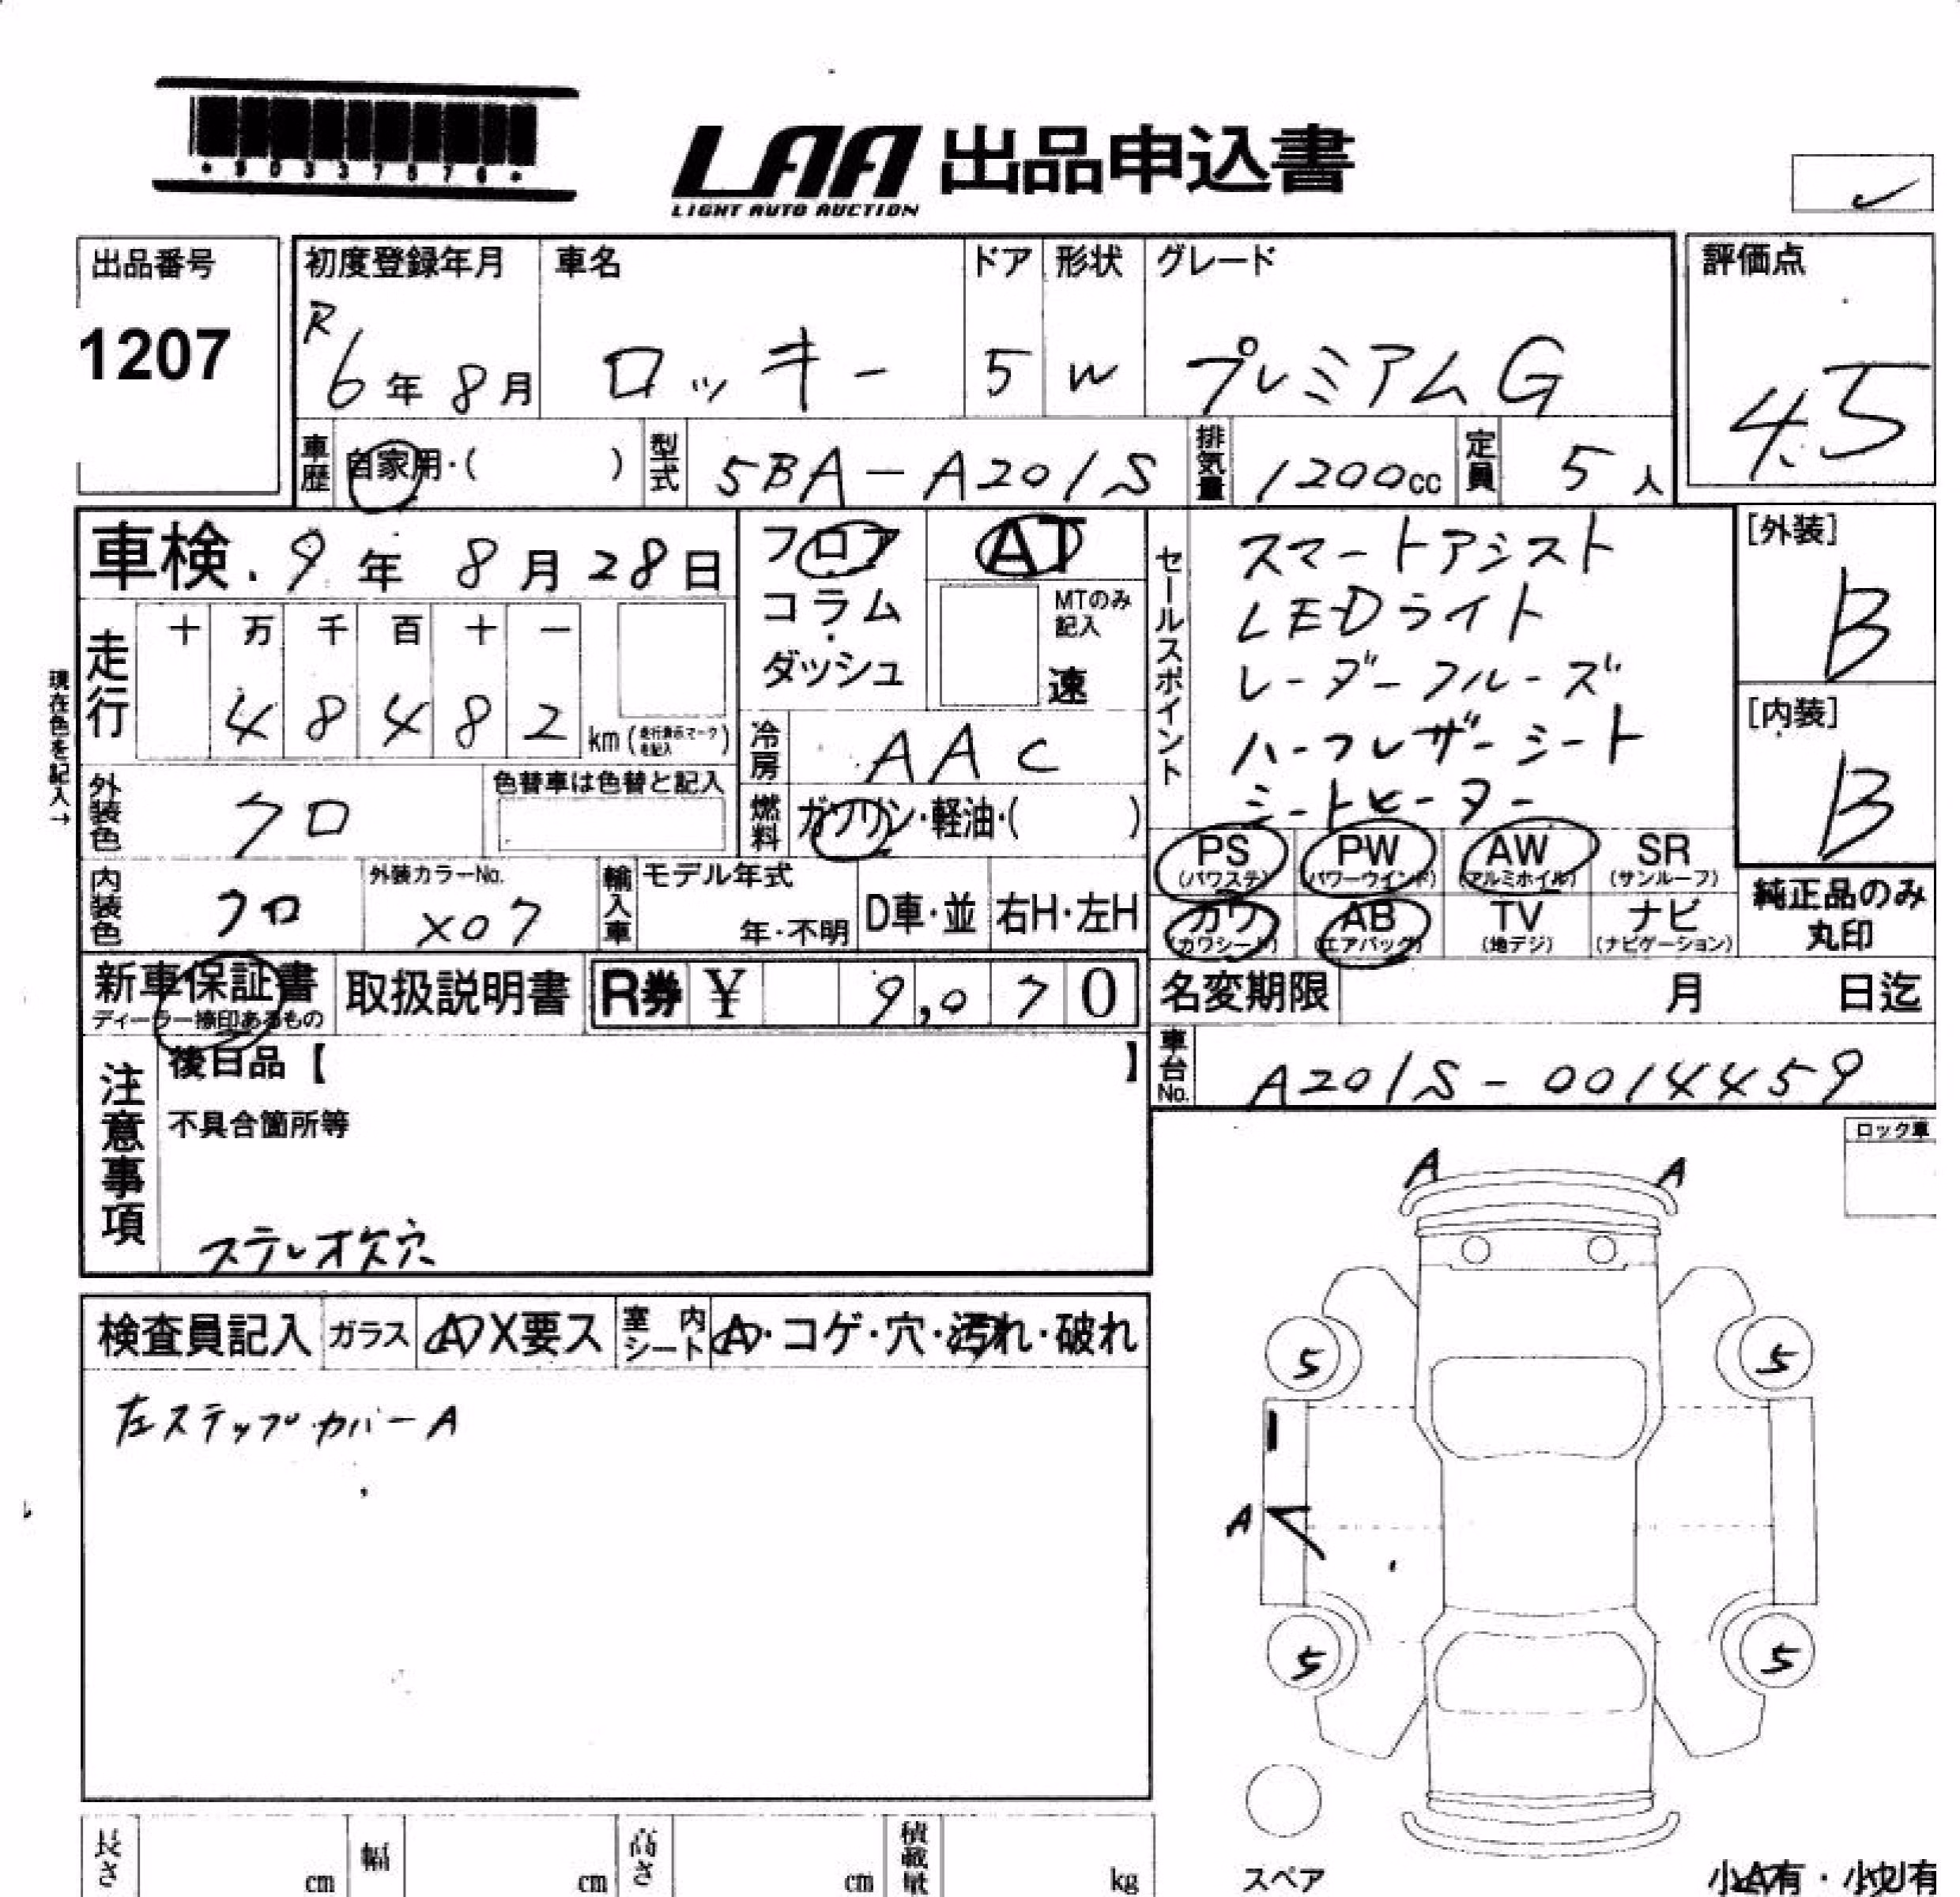 LAA 出品申込書
LIGHT AUTO AUCTION
出品番号
1207
初度登録年月
R6年8月
車名
ロッキー
ドア
5
形状
W
グレード
プレミアムG
評価点
4.5
車歴 自家用・( )
型式 5BA-A201S
排気量 1200cc
定員 5人
車検 9年8月28日
走行 十 万 千 百 十 一
48482 km (走行表示マークを記入)
現在色を記入→
外装色 クロ
色替車は色替と記入
内装色 クロ
外装カラーNo.
X07
フロア
コラム
ダッシュ
AT
MTのみ記入
速
冷房 AAC
燃料 ガソリン・軽油・( )
輸入車 モデル年式
年・不明
D車・並
右H・左H
セールスポイント
スマートアシスト
LEDライト
レーダークルーズ
ハーフレザーシート
シートヒーター
PS (パワステ)
PW (パワーウインド)
AW (アルミホイル)
SR (サンルーフ)
カワ (カワシート)
AB (エアバック)
TV (地デジ)
ナビ (ナビゲーション)
[外装]
B
[内装]
B
純正品のみ
丸印
新車保証書
ディーラー捺印あるもの
取扱説明書
R券 ¥ 9,070
名変期限 月 日迄
車台No. A201S-0014459
注意事項
後日品【 】
不具合箇所等
ステレオ欠穴
検査員記入
ガラス A X要ス
室内シート A・コゲ・穴・汚れ・破れ
左ステップカバーA
ロック車
A A
5 5
A
5 5
スペア
長さ cm
幅 cm
高さ cm
積載量 kg
小A有・小U有